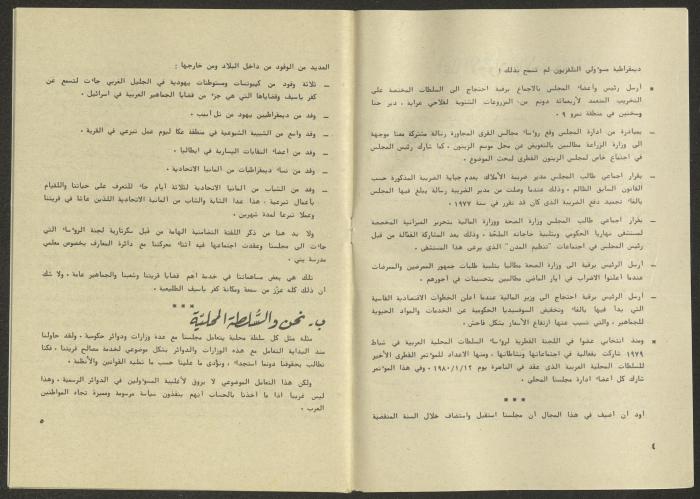 ديمقراطية مسؤولي التلفزيون لم تسمح بذلك !
* أرسل رئيس وأعضاء المجلس بالاجماع برقية احتجاج الى السلطات المختصة على
التخريب المتعمد لأربعمائة دونم من المزروعات الشتوية لفلاحي عرابة ، دير حنا
وسخنين في منطقة نمرو ٩ .
— بمبادرة من ادارة المجلس وقع رؤساء مجالس القرى المجاورة رسالة مشتركة معنا موجهة
الى وزارة الزراعة مطالبين بالتعويض عن محل موسم الزيتون . كما شارك رئيس المجلس
في اجتماع خاص لمجلس الزيتون القطري لبحث الموضوع .
— بقرار اجماعي طالب المجلس مدير ضريبة الأملاك بعدم جباية الضريبة المذكورة حسب
القانون السابق الظالم . وذلك عندما وصلت من مدير الضريبة رسالة يبلغ فيها المجلس
بالغاء تجميد دفع الضريبة الذي كان قد تقرر في سنة ١٩٧٧
— بقرار اجماعي طالب المجلس وزارة الصحة ووزارة المالية بتحرير الميزانية المخصصة
لمستشفى نهاريا الحكومي وبتلبية حاجاته الملحّة . وذلك بعد المشاركة الفعّالة من قبل
رئيس المجلس في اجتماعات "تنظيم المدن" الذي يرعى هذا المستشفى .
— أرسل الرئيس برقية الى وزارة الصحة مطالبا بتلبية طلبات جمهور الممرضين والممرضات
عندما أعلنوا الاضراب في أيار الماضي مطالبين بتحسينات في أجورهم .
— أرسل الرئيس برقية احتجاج الى وزير المالية عندما أعلن الخطوات الاقتصادية القاسية
التي بدأ فيها بالغاء وتخفيض السوبسيديا الحكومية عن الخدمات والمواد الحيوية
للجماهير . والتي تسبب عنها ارتفاع الأسعار بشكل فاحش .
* ومنذ انتخابي عضوا في اللجنة القطرية لرؤساء السلطات المحلية العربية في شباط
١٩٧٩ شاركت بفعالية في اجتماعاتها ونشاطاتها ، ومنها الاعداد للمؤتمر القطري الأخير
للسلطات المحلية العربية الذي عقد في الناصرة يوم ١٩٨٠/١/١٢ . وفي هذا المؤتمر
شارك كل أعضاء ادارة مجلسنا المحلي .
* * *
أود أن أضيف في هذا المجال أن مجلسنا استقبل واستضاف خلال السنة المنقضية
٤
العديد من الوفود من داخل البلاد ومن خارجها :
— ثلاثة وفود من كيبوتسات ومستوطنات يهودية في الجليل الغربي جاءت لتسمع عن
كفر ياسيف وقضاياها التي هي جزء من قضايا الجماهير العربية في اسرائيل .
— وفد من ديمقراطيين يهود من تل أبيب .
— وفد واسع من الشبيبة الشيوعية في منطقة عكا ليوم عمل تبرعي في القرية .
— وفد من أعضاء النقابات اليسارية في ايطاليا .
— وفد من نساء ديمقراطيات من المانيا الاتحادية .
— وفد من الشباب من المانيا الاتحادية لثلاثة أيام جاء للتعرف على حياتنا وللقيام
بأعمال تبرعية . هذا عدا الشابة والشاب من المانية الاتحادية اللذين عاشا في قريتنا
وعملا تبرعا لمدة شهرين .
ولا بد هنا من ذكر اللفتة التضامنية الهامة من قبل سكرتارية لجنة الرؤساء التي
جاءت الى مجلسنا وعقدت اجتماعها فيه أثناء معركتنا مع دائرة المعارف بخصوص معلمي
مدرسة يني .
تلك هي بعض مساهماتنا في خدمة أهم قضايا قريتنا وشعبنا والجماهير عامة . ولا شك
أن ذلك كله عزّز من سمعة ومكانة كفر ياسيف الطليعية .
* * *
ب. نحن والسّلطة المحليّة
مثله مثل كل سلطة محلية يتعامل مجلسنا مع عدة وزارات ودوائر حكومية . ولقد حاولنا
منذ البداية التعامل مع هذه الوزارات والدوائر بشكل موضوعي لخدمة مصالح قريتنا . فكنا
نطالب بحقوقنا دونما استجداء . ونؤدي ما علينا حسب ما تمليه القوانين والأنظمة .
ولكن هذا التعامل الموضوعي لا يروق لأغلبية المسؤولين في الدوائر الرسمية . وهذا
ليس غريبا اذا ما أخذنا بالحساب أنهم ينفذون سياسة مرسومة ومميزة تجاه المواطنين
العرب .
٥